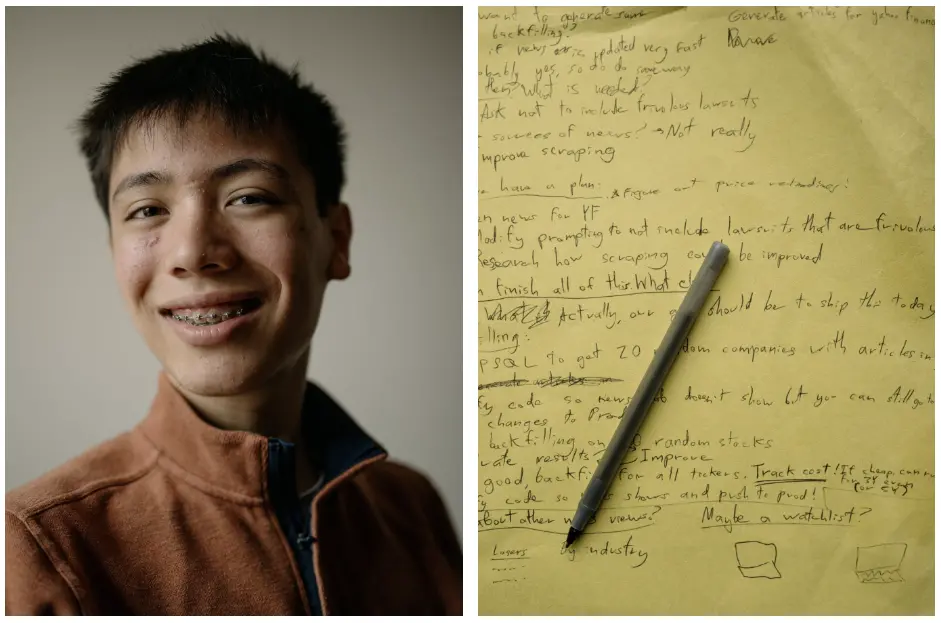 want to generate some Generate articles for yahoo finance
backfilling?
if news is updated very fast
probably yes, so do do some way
then? What is needed?
Ask not to include frivolous lawsuits
sources of news? → Not really
improve scraping
have a plan: Figure out price
news for YF
Modify prompting to not include lawsuits that are frivolous
Research how scraping could be improved
finish all of this. What
Actually, our should be to ship this today
PSQL to get 20 random companies with articles in
code so news doesn't show but you can still go to
changes to Prod
backfilling on random stocks
results? Improve
good, backfill for all tickers. Track cost! If cheap, can
code so shows and push to prod!
about other news views? Maybe a watchlist?
Layers By industry